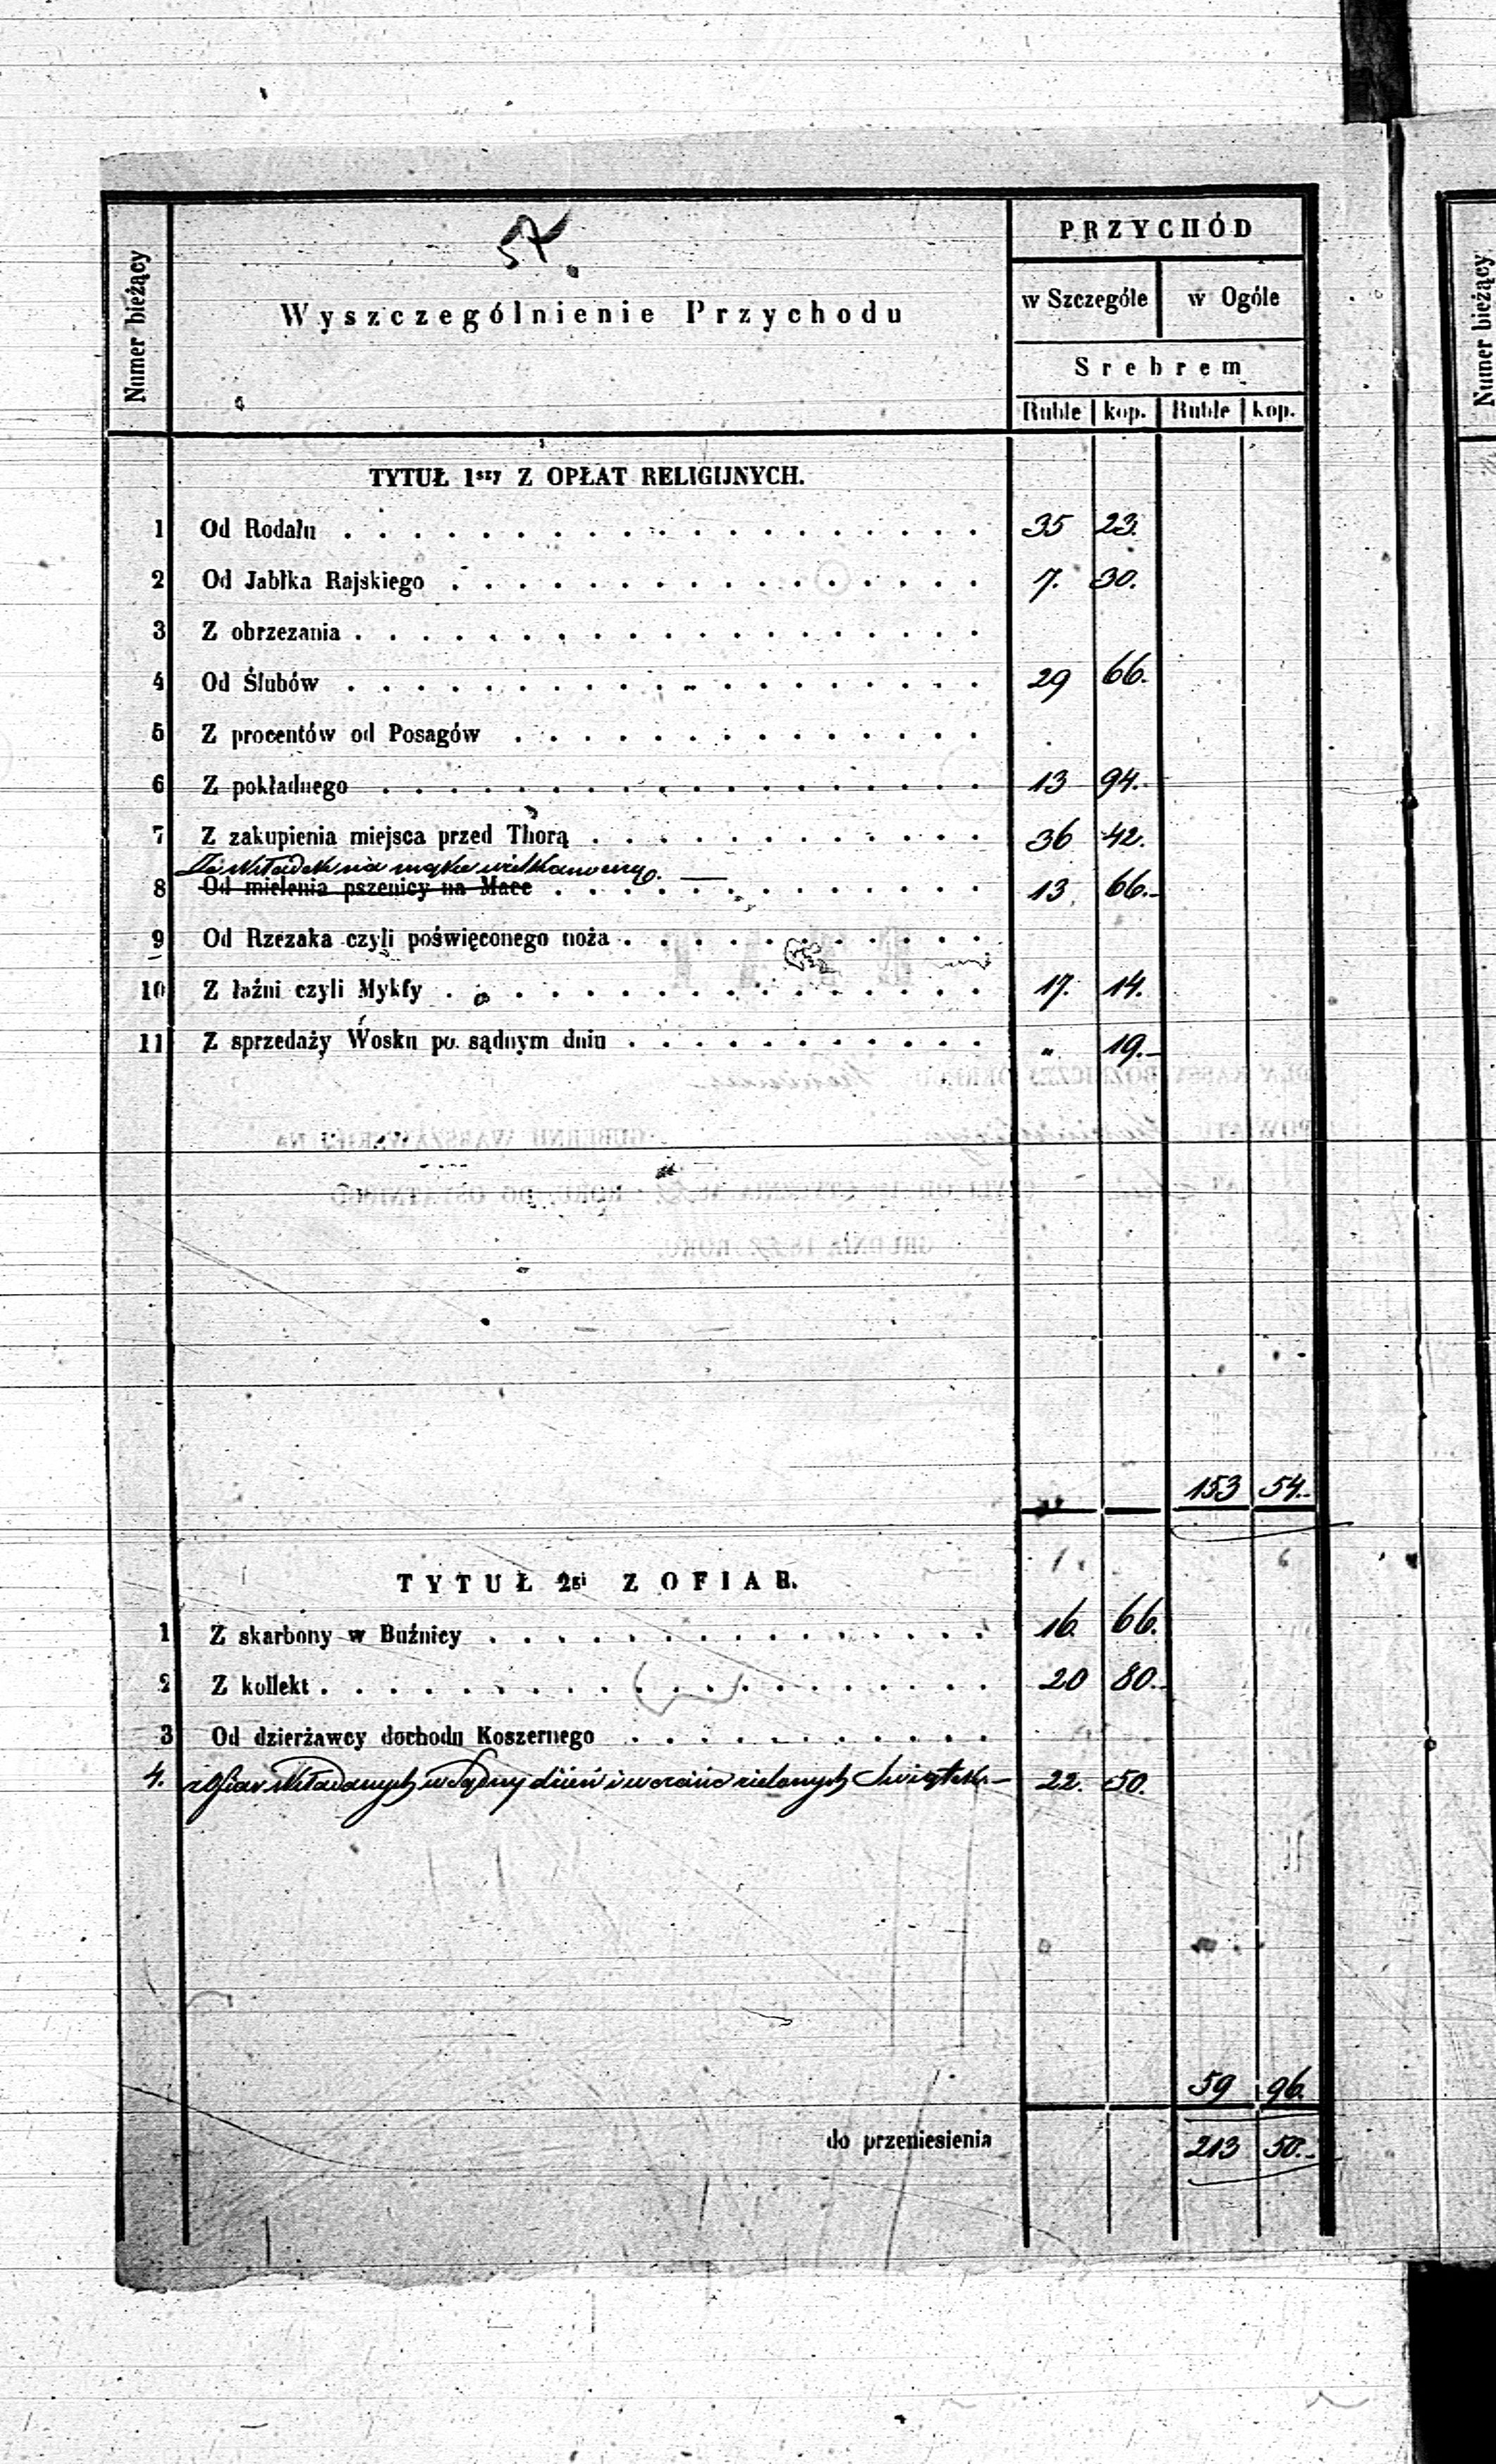 57.
Numer bieżący
Wyszczególnienie Przychodu
PRZYCHÓD
w Szczególe w Ogóle
Srebrem
Ruble kop. Ruble kop.
TYTUŁ 1szy Z OPŁAT RELIGIJNYCH.
1 Od Rodału . . . . . . . . . . . . . . . . . . . 35 23.
2 Od Jabłka Rajskiego . . . . . . . . . . . . . . . . 7. 30.
3 Z obrzezania . . . . . . . . . . . . . . . . . . .
4 Od Ślubów . . . . . . . . . . . . . . . . . . . 29 66.
5 Z procentów od Posagów . . . . . . . . . . . . . .
6 Z pokładnego . . . . . . . . . . . . . . . . . . 13 94.
7 Z zakupienia miejsca przed Thorą . . . . . . . . . . . . 36 42.
Ze składek na mąkę wielkanocną. —
8 Od mielenia pszenicy na Mace . . . . . . . . . . . . . 13 66.
9 Od Rzezaka czyli poświęconego noża . . . . . . . . . . .
10 Z łaźni czyli Mykfy . . . . . . . . . . . . . . . . 17. 14.
11 Z sprzedaży Wosku po sądnym dniu . . . . . . . . . . . " 19.
153 54.
TYTUŁ 2gi Z OFIAR.
1 Z skarbony w Buźnicy . . . . . . . . . . . . . . . 16. 66.
2 Z kollekt . . . . . . . . . . . . . . . . . . . . 20 80.
3 Od dzierżawcy dochodu Koszernego . . . . . . . . . . .
4. z ofiar składanych w Sądny dzień i w czasie zielonych Świątek. — 22. 50.
59 96.
do przeniesienia 213 50.
Numer bieżący